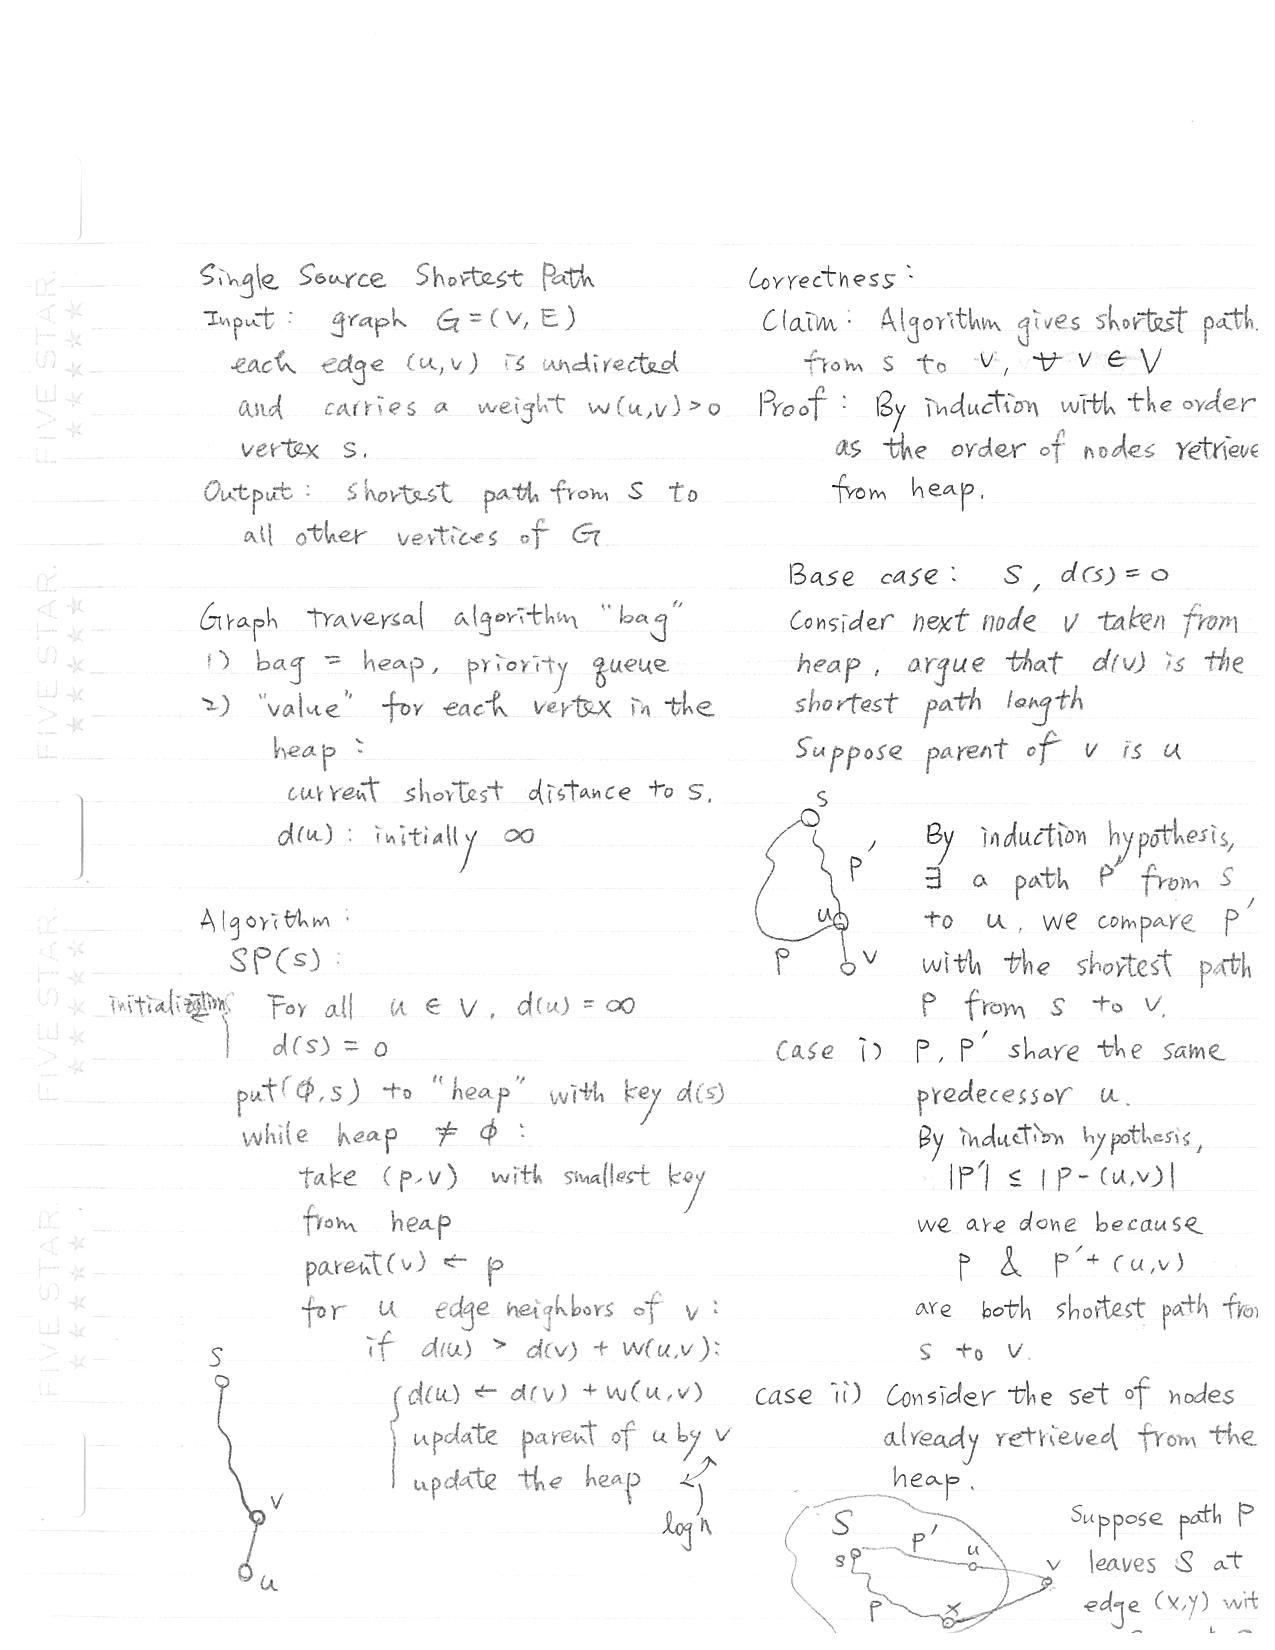 Single Source Shortest Path
Input : graph G = (V, E)
each edge (u,v) is undirected
and carries a weight w(u,v) > 0
vertex s.
Output : shortest path from s to
all other vertices of G
Graph traversal algorithm "bag"
1) bag = heap, priority queue
2) "value" for each vertex in the
heap :
current shortest distance to s.
d(u) : initially ∞
Algorithm :
SP(s) :
initialization For all u ∈ V, d(u) = ∞
d(s) = 0
put(∅,s) to "heap" with key d(s)
while heap ≠ ∅ :
take (p,v) with smallest key
from heap
parent(v) ← p
for u edge neighbors of v :
if d(u) > d(v) + w(u,v):
d(u) ← d(v) + w(u,v)
update parent of u by v
update the heap
log n
s
v
u
Correctness :
Claim : Algorithm gives shortest path
from s to v, ∀ v ∈ V
Proof : By induction with the order
as the order of nodes retrieve
from heap.
Base case : s, d(s) = 0
Consider next node v taken from
heap, argue that d(v) is the
shortest path length
Suppose parent of v is u
s
P'
u
P
v
By induction hypothesis,
∃ a path P' from s
to u, we compare P'
with the shortest path
P from s to v.
Case i) P, P' share the same
predecessor u.
By induction hypothesis,
|P'| ≤ |P - (u,v)|
we are done because
P & P' + (u,v)
are both shortest path from
s to v.
case ii) Consider the set of nodes
already retrieved from the
heap.
S
s
P'
u
v
P
x
Suppose path P
leaves S at
edge (x,y) wit